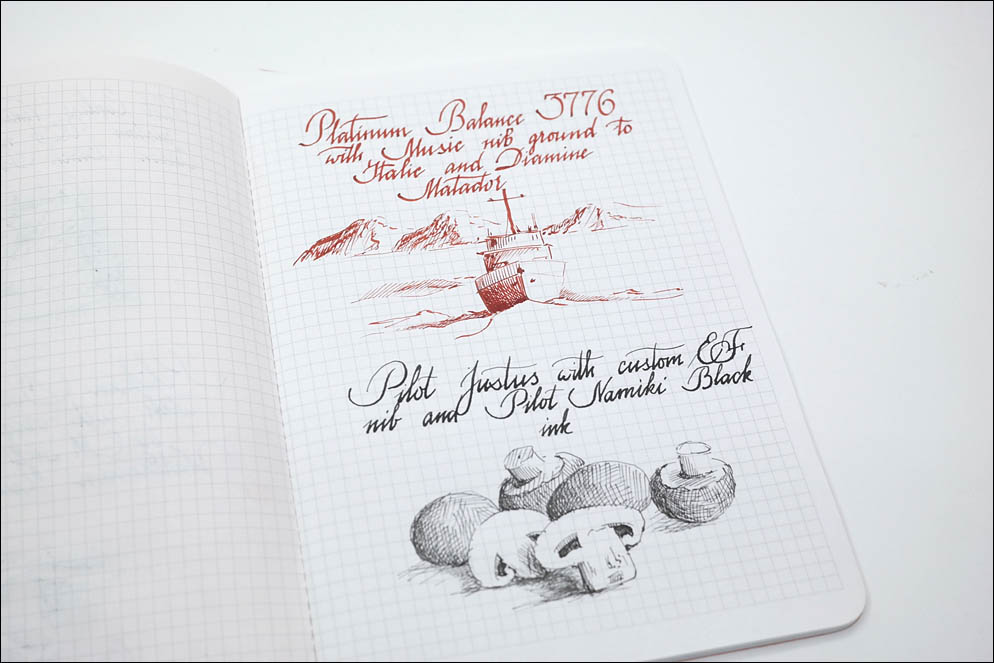 Platinum Balance 3776
with Music nib ground to
Italic and Diamine
Matador
Pilot Justus with custom EF
nib and Pilot Namiki Black
ink